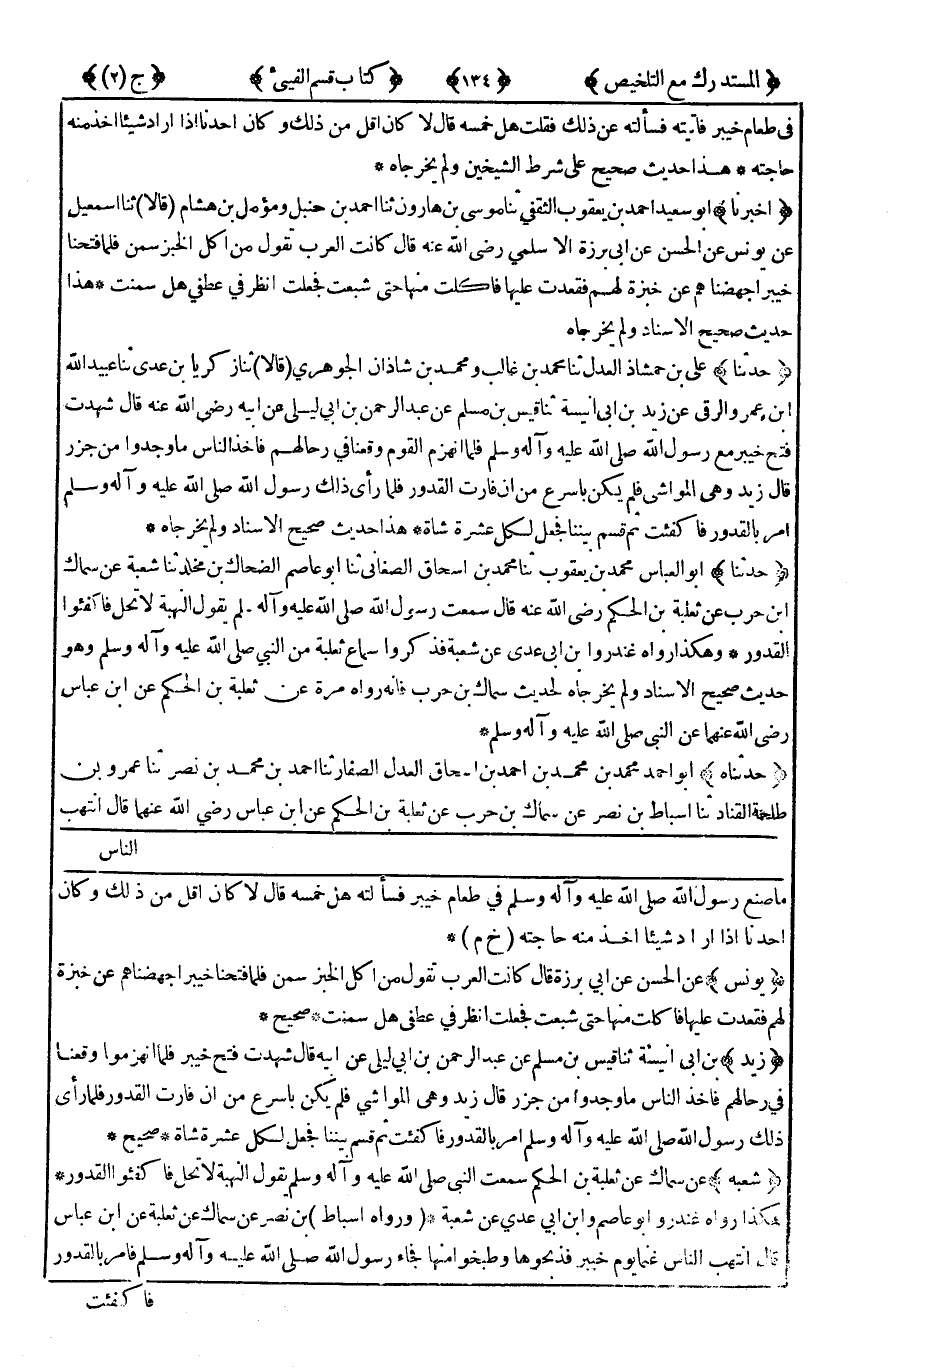 ﴿ المستدرك مع التلخيص ﴾ ﴿ ١٣٤ ﴾ ﴿ كتاب قسم الفيئ ﴾ ﴿ ج (٢) ﴾
فى طعام خيبر فأتيته فسألته عن ذلك فقلت هل خمسه قال لا كان اقل من ذلك و كان احدنا اذا اراد شيئا اخذ منه
حاجته * هذا حديث صحيح على شرط الشيخين ولم يخرجاه *
﴿ اخبرنا ﴾ ابو سعيد احمد بن يعقوب الثقفي ثنا موسى بن هارون ثنا احمد بن حنبل ومؤمل بن هشام (قالا) ثنا اسمعيل
عن يونس عن الحسن عن ابى برزة الاسلمي رضى الله عنه قال كانت العرب تقول من اكل الخبز سمن فلما فتحنا
خيبر اجهضناهم عن خبزة لهم فقعدت عليها فاكلت منها حتى شبعت فجعلت انظر في عطفي هل سمنت * هذا
حديث صحيح الاسناد ولم يخرجاه
﴿ حدثنا ﴾ على بن حمشاذ العدل ثنا محمد بن غالب ومحمد بن شاذان الجوهري (قالا) ثنا زكريا بن عدى ثنا عبيد الله
ابن عمرو الرقى عن زيد بن ابى انيسة ثنا قيس بن مسلم عن عبد الرحمن بن ابي ليلى عن ابيه رضى الله عنه قال شهدت
فتح خيبر مع رسول الله صلى الله عليه وآله وسلم فلما انهزم القوم وقعنا في رحالهم فاخذ الناس ما وجدوا من جزر
قال زيد وهى المواشى فلم يكن باسرع من ان فارت القدور فلما رأى ذلك رسول الله صلى الله عليه وآله وسلم
امر بالقدور فاكفئت ثم قسم بيننا فجعل لكل عشرة شاة * هذا حديث صحيح الاسناد ولم يخرجاه *
﴿ حدثنا ﴾ ابو العباس محمد بن يعقوب ثنا محمد بن اسحاق الصغانى ثنا ابو عاصم الضحاك بن مخلد ثنا شعبة عن سماك
ابن حرب عن ثعلبة بن الحكم رضى الله عنه قال سمعت رسول الله صلى الله عليه وآله وسلم يقول النهبة لا تحل فاكفئوا
القدور * وهكذا رواه غندر وابن ابى عدى عن شعبة فذكروا سماع ثعلبة من النبي صلى الله عليه وآله وسلم وهو
حديث صحيح الاسناد ولم يخرجاه لحديث سماك بن حرب فانه رواه مرة عن ثعلبة بن الحكم عن ابن عباس
رضى الله عنهما عن النبي صلى الله عليه وآله وسلم *
﴿ حدثناه ﴾ ابو احمد محمد بن محمد بن احمد بن اسحاق العدل الصفار ثنا احمد بن محمد بن نصر ثنا عمرو بن
طلحة القناد ثنا اسباط بن نصر عن سماك بن حرب عن ثعلبة بن الحكم عن ابن عباس رضي الله عنهما قال انتهب
الناس
ما صنع رسول الله صلى الله عليه وآله وسلم في طعام خيبر فسألته هل خمسه قال لا كان اقل من ذلك وكان
احدنا اذا اراد شيئا اخذ منه حاجته ( خ م ) *
﴿ يونس ﴾ عن الحسن عن ابي برزة قال كانت العرب تقول من اكل الخبز سمن فلما فتحنا خيبر اجهضناهم عن خبزة
لهم فقعدت عليها فاكلت منها حتى شبعت فجعلت انظر في عطفى هل سمنت * صحيح *
﴿ زيد ﴾ بن ابى انيسة ثنا قيس بن مسلم عن عبد الرحمن بن ابي ليلى عن ابيه قال شهدت فتح خيبر فلما انهزموا وقعنا
في رحالهم فاخذ الناس ما وجدوا من جزر قال زيد وهى المواشي فلم يكن باسرع من ان فارت القدور فلما رأى
ذلك رسول الله صلى الله عليه وآله وسلم امر بالقدور فاكفئت ثم قسم بيننا فجعل لكل عشرة شاة * صحيح *
﴿ شعبه ﴾ عن سماك عن ثعلبة بن الحكم سمعت النبي صلى الله عليه وآله وسلم يقول النهبة لا تحل فاكفئوا القدور *
هكذا رواه غندر و ابو عاصم وابن ابي عدي عن شعبة * ( ورواه اسباط ) بن نصر عن سماك عن ثعلبة عن ابن عباس
قال انتهب الناس غنما يوم خيبر فذبحوها وطبخوا منها فجاء رسول الله صلى الله عليه وآله وسلم فامر بالقدور
فاكفئت